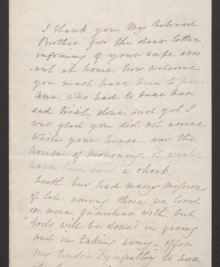 I thank you My beloved
Brother for the dear letter
informing of your safe arri
val at home, how welcome
you must have been to
Ann, who had to bear
sad trial, alone and yet I
was glad you did not arrive
while your house was the
house of Mourning, it would
have been such a shock.
death has had many
of late among those we loved
or were familiar with, but
"Gods will be done" in giving
and in taking away - offer
My tender Sympathy to